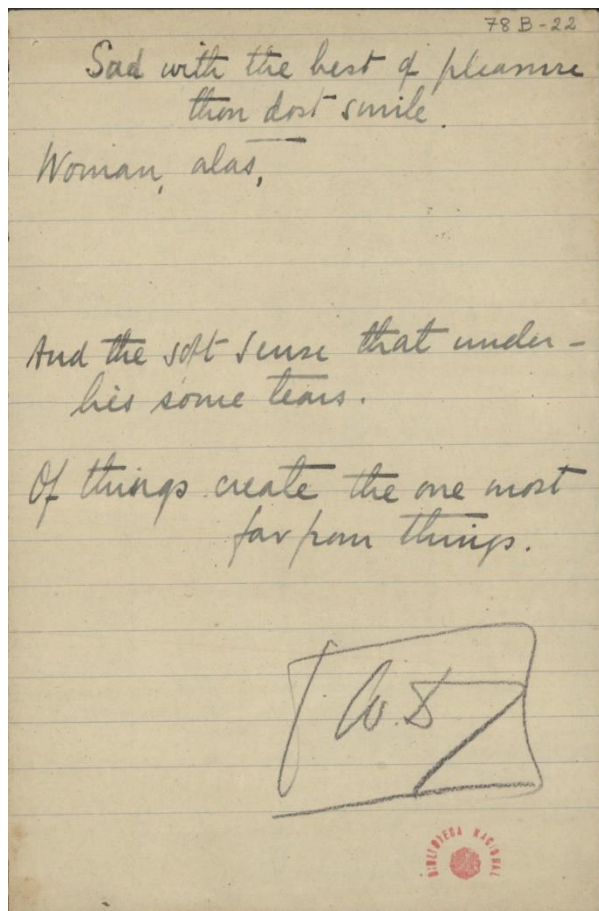 78 B - 22
Sad with the best of pleasure
thou dost smile.
Woman, alas,
And the soft sense that under-
lies some tears.
Of things create the one most
far from things.
BIBLIOTECA NACIONAL